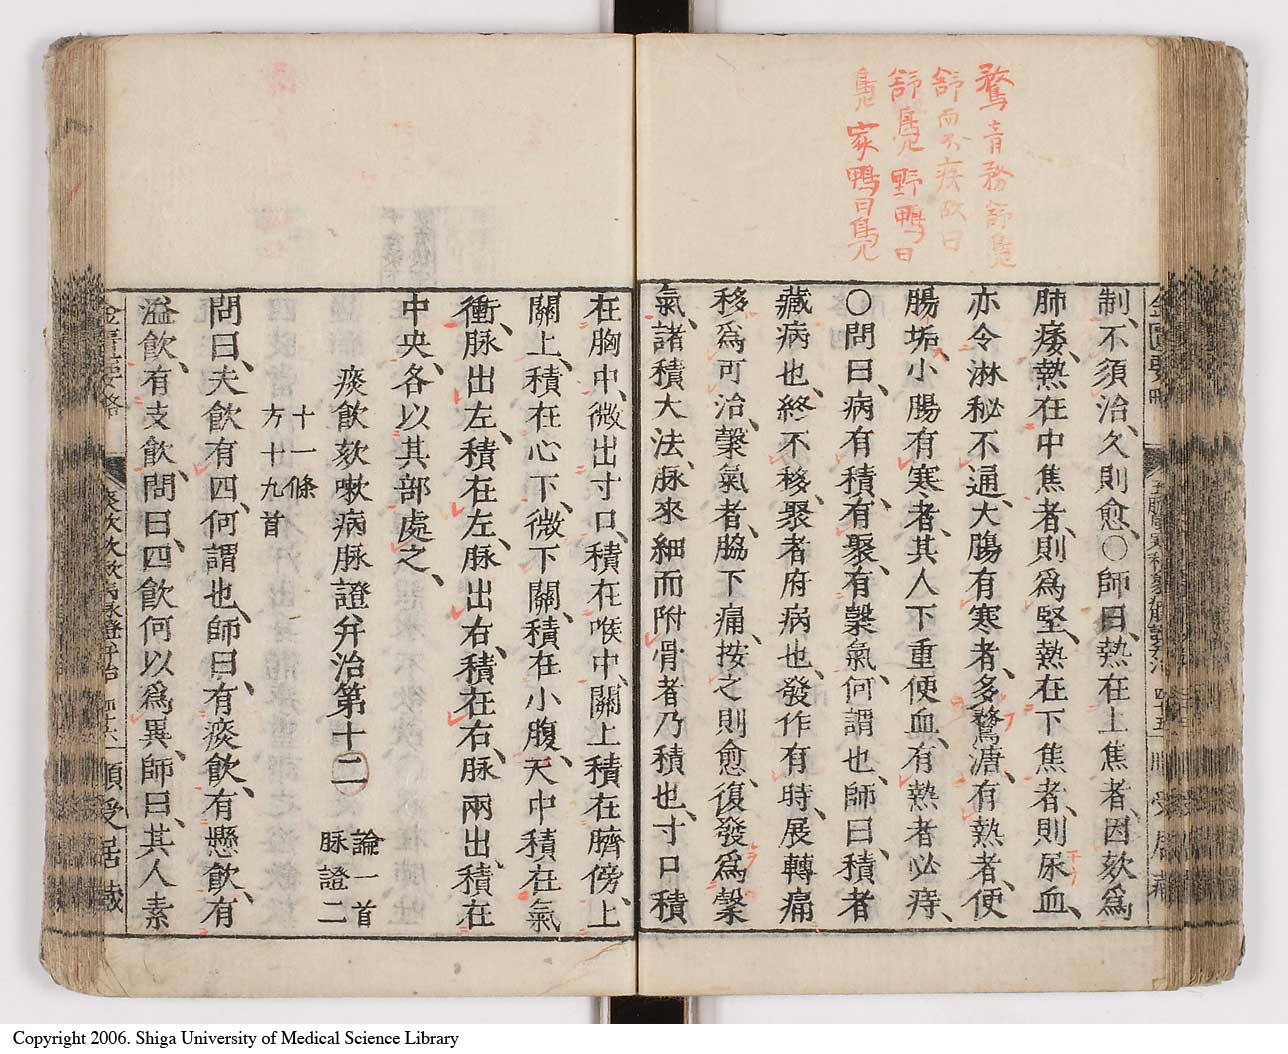 鶩音務舒鳧
舒而不疾故曰
舒鳧野鴨曰
鳧家鴨曰鳧
制、不須治、久則愈、○師曰、熱在上焦者、因欬爲
肺痿、熱在中焦者、則爲堅、熱在下焦者、則尿血、
亦令淋秘不通、大腸有寒者、多鶩溏、有熱者、便
腸垢、小腸有寒者、其人下重便血、有熱者必痔、
○問曰、病有積、有聚、有䅽氣、何謂也、師曰積者
藏病也、終不移、聚者府病也、發作有時、展轉痛
移、爲可治、䅽氣者、脇下痛、按之則愈、復發爲䅽
氣、諸積大法、脉來細而附骨者乃積也、寸口積
在胸中、微出寸口、積在喉中、關上積在臍傍、上
關上、積在心下、微下關、積在小腹、天中積在氣
衝、脉出左、積在左、脉出右、積在右、脉兩出、積在
中央、各以其部處之、
痰飲欬嗽病脉證并治第十二
論一首
脉證二
十一條
方十九首
問曰、夫飲有四、何謂也、師曰、有痰飲、有懸飲、有
溢飲、有支飲、問曰、四飲何以爲異、師曰、其人素
Copyright 2006. Shiga University of Medical Science Library